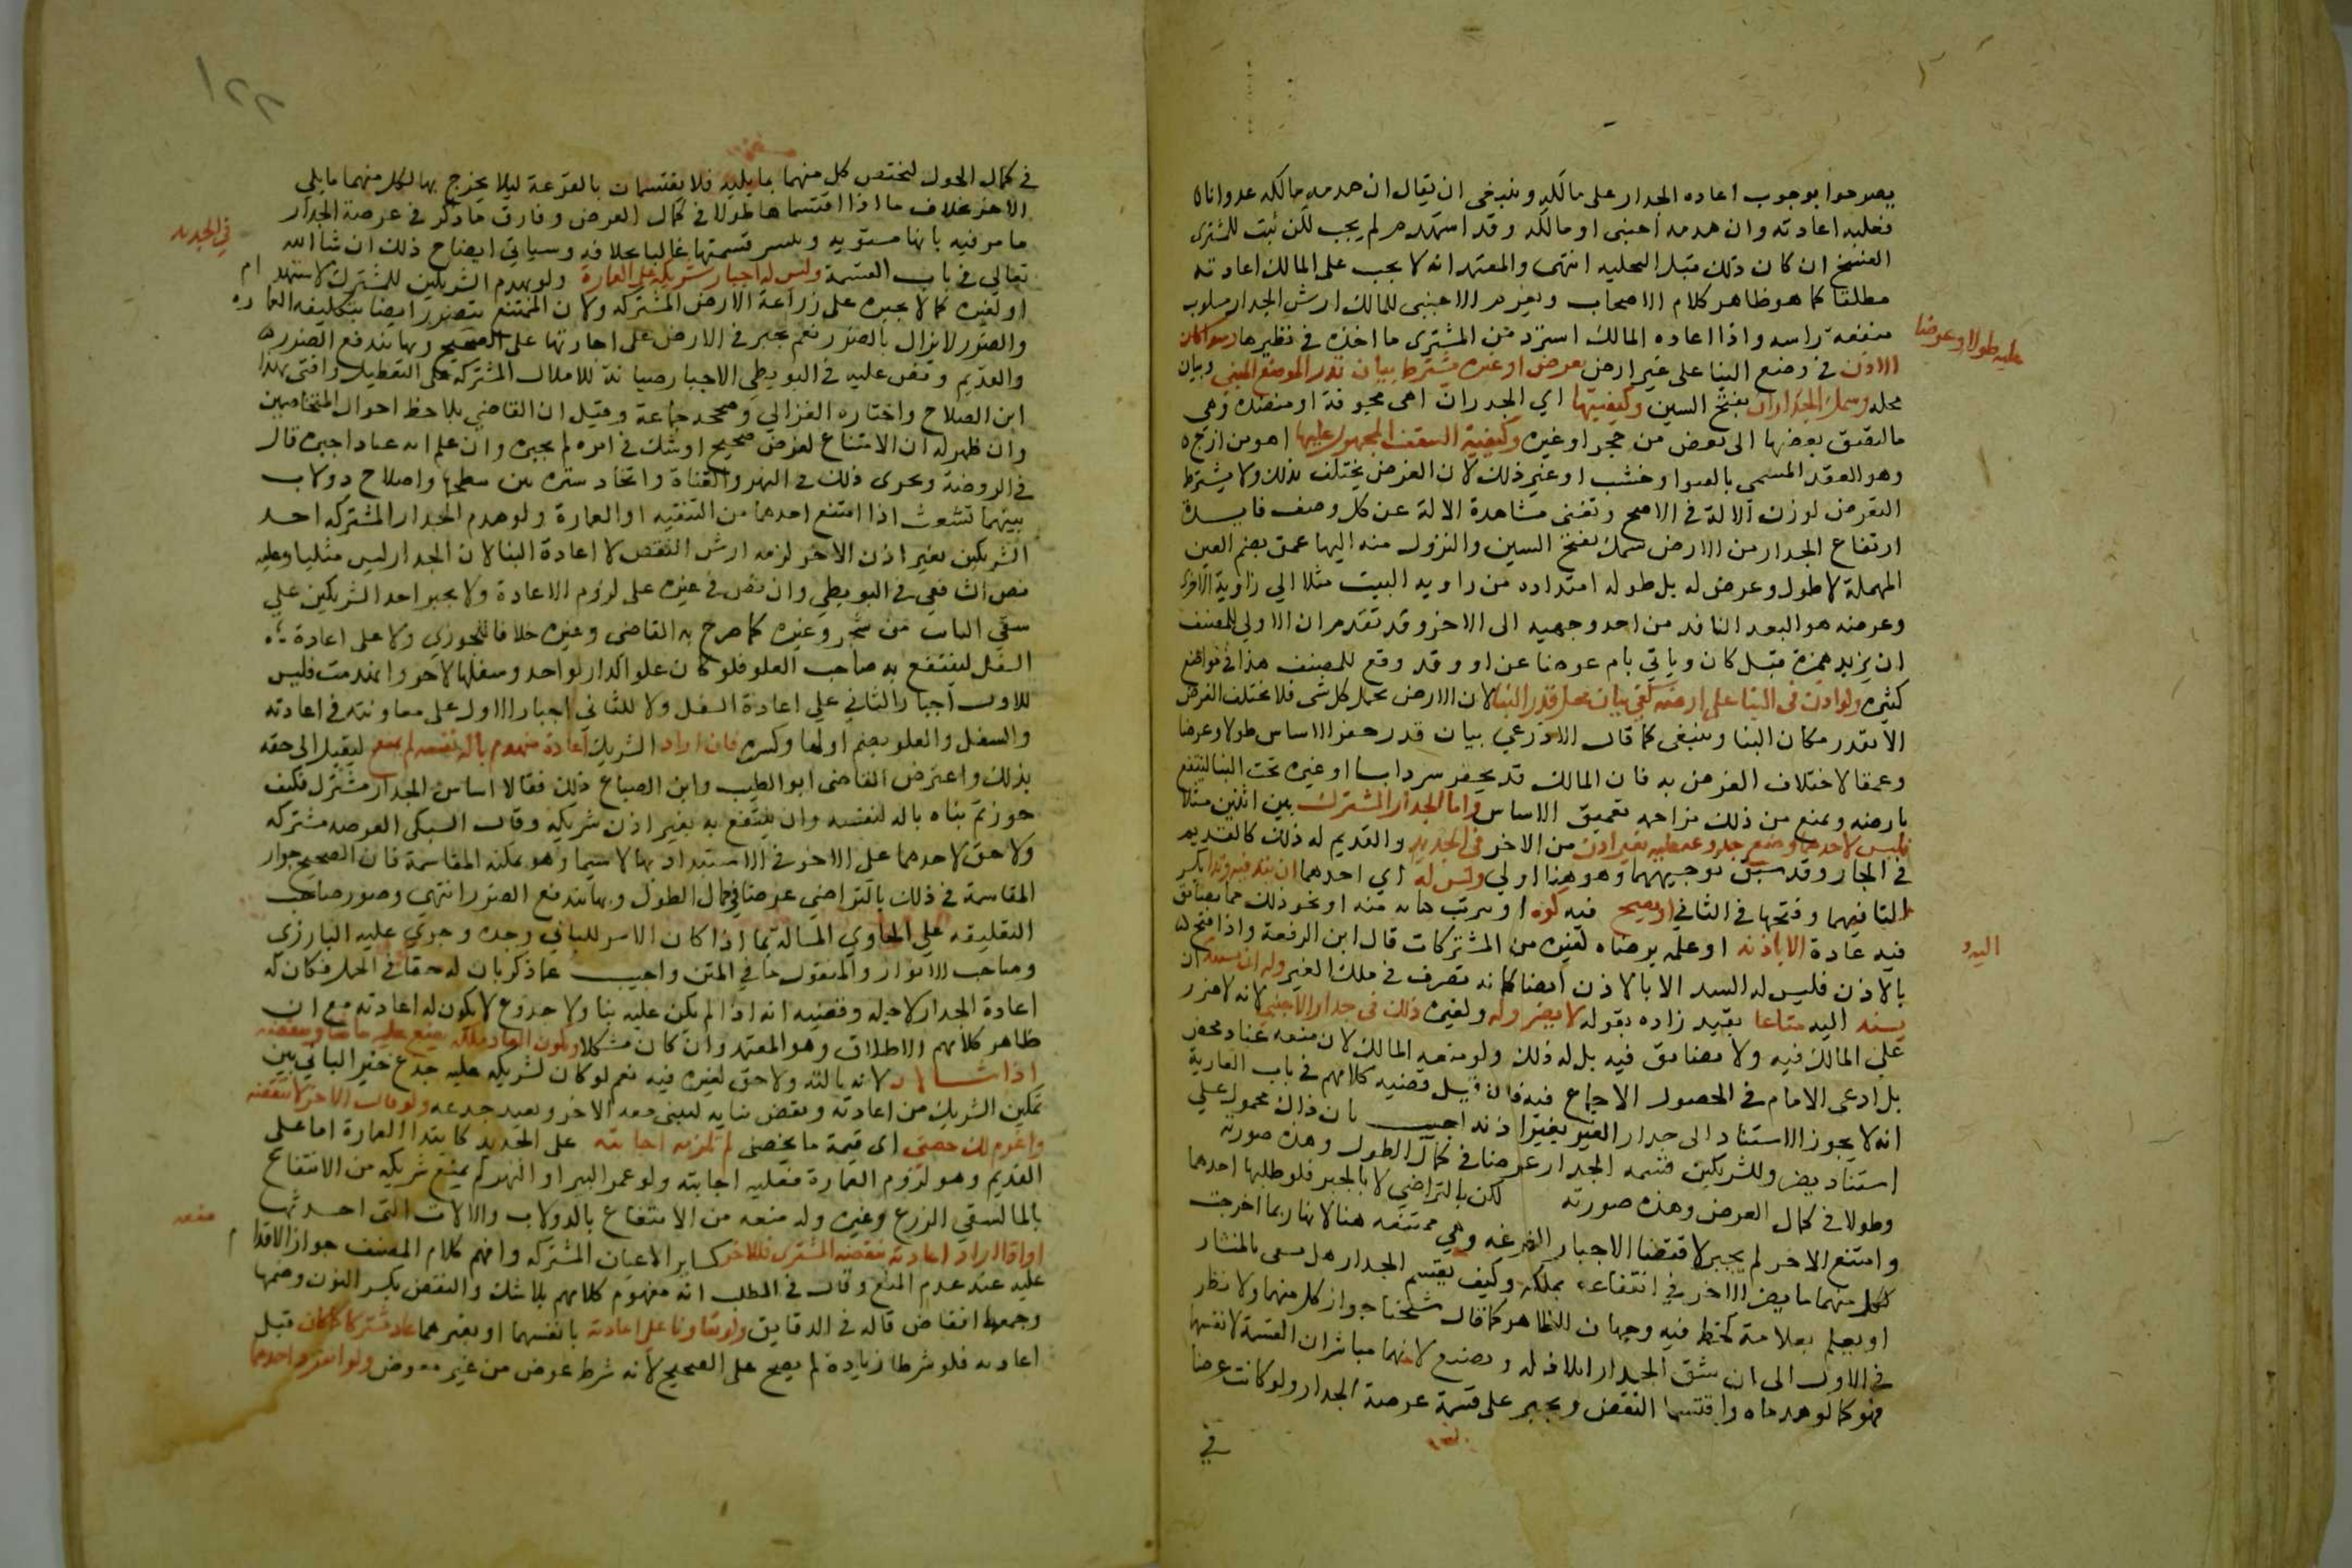 يصرحوا بوجوب اعاده الجدار على مالكه وينبغى ان يقال ان هدمه مالكه عدوانا
فعليه اعادته وان هدمه اجنبى او مالكه وقد استهدم لم يجب لكن يثبت للمشترى
الفسخ ان كان ذلك قبل التخليه انتهى والمعتمد انه لا يجب على المالك اعادته
مطلقا كما هو ظاهر كلام الاصحاب ويغرم الاجنبى للمالك ارش الجدار مسلوب
منفعة راسه واذا اعاده المالك استرد من المشترى ما اخذه فى نظيرها وسوا كان
الاذن فى وضع البنا على غير ارض بعوض او غيره يشترط بيان قدر الموضع المبنى وبيان
عليه طولا وعرضا
محله وسمك الجدران بفتح السين وكيفيتها اي الجدران اهى مجوفة او منضده وهى
ما التصق بعضها الى بعض من حجر او غيره وكيفية السقف المحمول عليها اهو من ازج
وهو العقد المسمى بالقبو او خشب او غير ذلك لان الغرض يختلف بذلك ولا يشترط
التعرض لوزن الالة فى الاصح وتغنى مشاهدة الالة عن كل وصف فايدة
ارتفاع الجدار من الارض سمك بفتح السين والنزول منه اليها عمق بضم العين
المهملة لا طول وعرض له بل طوله امتداده من زاويه البيت مثلا الي زاوية الاخرى
وعرضه هو البعد النافد من احد وجهيه الى الاخر وقد تقدم ان الاولى للمصنف
ان يزيد همزة قبل كان وياتي بام عوضا عن او وقد وقع للمصنف هذا فى مواضع
كثيره ولو اذن فى البنا على ارضه كفى بيان محل قدر البنا لان الارض تحمل كل شى فلا يختلف الغرض
الا بقدر مكان البنا وينبغى كما قال الاذرعي بيان قدر حفر الاساس طولا وعرضا
وعمقا لاختلاف الغرض به فان المالك قد يحفر سردابا او غيره تحت البنا لينتفع
بارضه ويمنع من ذلك مزاحمه تعميق الاساس واما الجدار المشترك بين اثنين مثلا
فليس لاحدهما وضع جذوعه عليه بغير اذن من الاخر فى الجديد والقديم له ذلك كالقديم
فى الجار وقد سبق توجيههما وهو هنا اولي وليس له اي احدهما ان يتد فيه وتدا بكسر
التا فيهما وفتحها فى الثاني او يفتح فيه كوه او يترب كتابه منه او نحو ذلك مما يضايق
فيه عادة الا باذنه او علمه برضاه لغيره من المشتركات قال ابن الرفعة واذا فتح
بالاذن فليس له السد الا بالاذن ايضا لانه تصرف فى ملك الغير وله ان يستند ان
اليه و
يسند اليه متاعا بقيد زاده بقوله لا يضر وله ولغيره ذلك فى جدار الاجنبي لانه لا ضرر
علي المالك فيه ولا مضايق فيه بل له ذلك ولو منعه المالك لان منعه عناد محض
بل ادعى الامام فى المحصول الاجماع فيه فان قيل قضيه كلامهم فى باب العارية
انه لا يجوز الاستناد الى جدار الغير بغير اذنه اجيب بان ذاك محمول علي
استناد يضر وللشريكين قسمه الجدار عرضا فى كمال الطول وهذه صورته
وطولا فى كمال العرض وهذه صورته لكن بالتراضي لا بالجبر فلو طلبها احدهما
وامتنع الاخر لم يجبر لاقتضا الاجبار القرعه وهي ممتنعه هنا لانها ربما اخرجت
لكل منهما ما يضر الاخر في انتفاعه بملكه وكيف يقتسم الجدار هل يشق بالمنشار
او يعلم بعلامة كخط فيه وجهان الظاهر كما قال شيخنا جواز كل منهما ولا نظر
فى الاول الى ان شق الجدار اتلاف له وتضييع لانهما مباشران القسمة لانفسهما
فهو كما لو هدماه واقتسما النقض ويجبر على قسمة عرصة الجدار ولو كانت عرضا
في
١٢٢
في كمال الطول ليختص كل منهما بما يليه فلا يقتسمان بالقرعة ليلا يخرج بها لكل منهما ما يلى
الاخر بخلاف ما اذا اقتسماها طولا فى كمال العرض وفارق ما ذكر فى عرصة الجدار
ما مر فيه بانها مستويه وتتيسر قسمتها غالبا بخلافه وسياتي ايضاح ذلك ان شا الله
فى الجديد
تعالى فى باب القسمة وليس له اجبار شريكه على العمارة ولو بهدم الشريكين للمشترك لاستهدام
او لغيره كما لا يجبره على زراعة الارض المشتركه ولان الممتنع يتضرر ايضا بتكليفه العماره
والضرر لا يزال بالضرر نعم يجبر فى الارض على اجارتها على الصحيح وبها يندفع الضرر
والقديم ونص عليه فى البويطي الاجبار صيانة للاملاك المشتركة على التعطيل وافتى بهذا
ابن الصلاح واختاره الغزالي وصححه جماعة وقيل ان القاضي يلاحظ احوال المتخاصمين
وان ظهر له ان الامتناع لغرض صحيح او شك فى امره لم يجبره وان علم انه عناد اجبره قال
فى الروضة ويجرى ذلك فى النهر والقناة واتخاذ ستره بين سطحيهما واصلاح دولاب
بينهما تشعث اذا امتنع احدهما من التنقيه او العمارة ولو هدم الجدار المشترك احد
الشريكين بغير اذن الاخر لزمه ارش النقص لا اعادة البنا لان الجدار ليس مثليا وعليه
نص الشافعى فى البويطي وان نص فى غيره على لزوم الاعادة ولا يجبر احد الشريكين علي
سقي النبات من شجر وغيره كما صرح به القاضي وغيره خلافا للجوري ولا على اعادة
السفل لينتفع به صاحب العلو فلو كان علو الدار لواحد وسفلها لاخر وانهدمت فليس
للاول اجبار الثاني علي اعادة السفل ولا للثاني اجبار الاول على معاونته فى اعادته
والسفل والعلو بضم اولهما وكسره فان اراد الشريك اعادة منهدم بالة لنفسه لم يمنع ليصل الى حقه
بذلك واعترض القاضى ابو الطيب وابن الصباغ ذلك فقالا اساس الجدار مشترك فكيف
جوزتم بناه بالة لنفسه وان ينتفع به بغير اذن شريكه وقال السبكى العرصه مشتركه
ولا حق لاحدهما على الاخر فى الاستبداد بها لا سيما وهو يمكنه المقاسمة فان الصحيح جواز
المقاسمة فى ذلك بالتراضي عرضا في كمال الطول وبها يندفع الضرر انتهى وصور صاحب
التعليقه علي الحاوي المسالة بما اذا كان الاس للباني وحده وجري عليه البارزي
وصاحب الانوار والمنقول ما في المتن واجيب عما ذكر بان له حقا فى الحمل فكان له
اعادة الجدار لاجله وقضيته انه اذا لم يكن عليه بنا ولا جذوع لا يكون له اعادته مع ان
ظاهر كلامهم الاطلاق وهو المعتمد وان كان مشكلا ويكون المعاد ملكه يضع عليه ما شا وينقضه
اذا شا لانه بالته ولا حق لغيره فيه نعم لو كان لشريكه عليه جذع خير الباني بين
تمكين الشريك من اعادته ونقض بنايه ليبنى معه الاخر ويعيد جذعه ولو قال الاخر لا تنقضه
واغرم لك حصتى اى قيمة ما يخصنى لم تلزمه اجابته على الجديد كابتدا العمارة اما على
القديم وهو لزوم العمارة فعليه اجابته ولو عمر البير او النهر لم يمنع شريكه من الانتفاع
بالما لسقي الزرع وغيره وله منعه من الانتفاع بالدولاب والالات التى احدثها
منعه
او اذا اراد اعادته بنقضه المشترك فللاخر كساير الاعيان المشتركه وافهم كلام المصنف جواز الاقدام
عليه عند عدم المنع وقال فى المطلب انه مفهوم كلامهم بلا شك والنقض بكسر النون وضمها
وجمعها انقاض قاله فى الدقايق ولو تعاونا على اعادته بانفسهما او بغيرهما عاد مشتركا كما كان قبل
اعادته فلو شرطا زيادة لم يصح على الصحيح لانه شرط عوض من غير معوض ولو انفرد احدهما